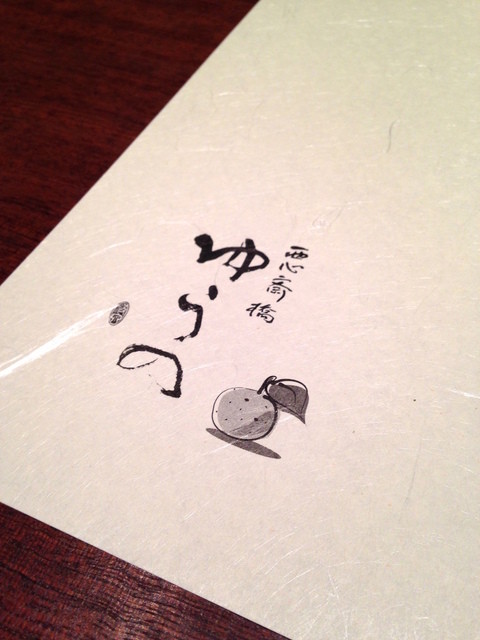 西心斎橋
ゆらの